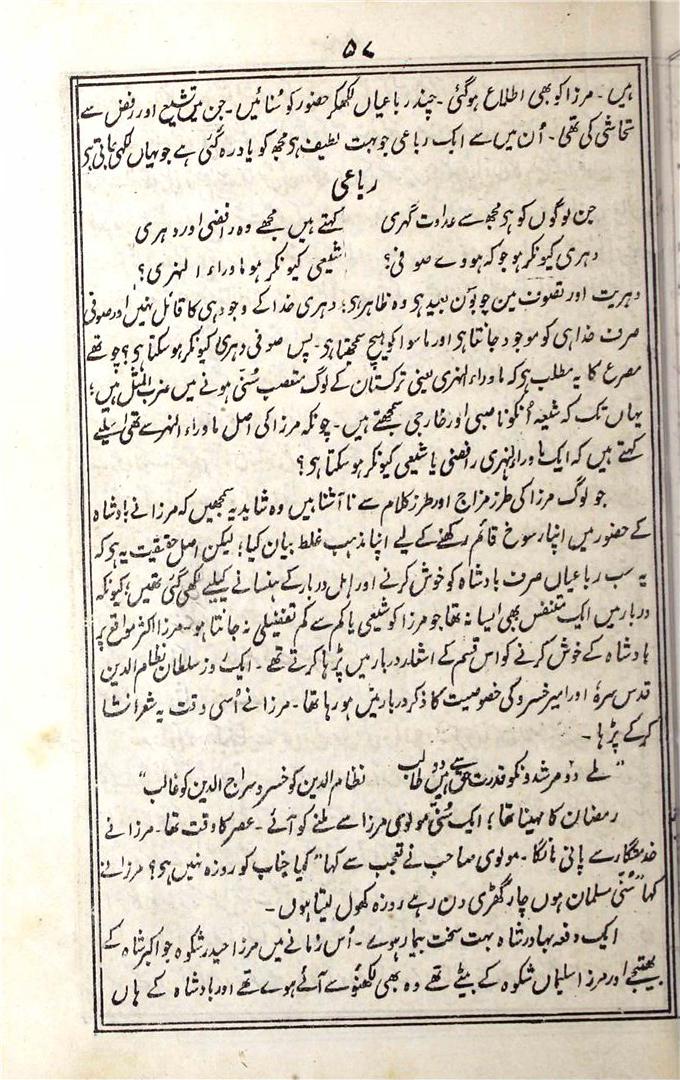 ۵۷
ہیں - مرزا کو بھی اطلاع ہوگئی - چند رباعیاں لکھکر حضور کو سُنائیں - جن میں تشیع اور رفض سے
تحاشی کی تھی - اُن میں سے ایک رباعی جو بہت لطیف ہی مجھ کو یاد رہ گئی ہے جو یہاں لکھی جاتی ہی
رباعی
جن لوگوں کو ہی مجھ سے عداوت گہری کہتے ہیں مجھے وہ رافضی اور دہری
دہری کیونکر ہو جو کہ ہووے صوفی؟ شیعی کیونکر ہو ماوراء النہری؟
دہریت اور تصوف مین جو بَون بعید ہی وہ ظاہر ہی؛ دہری خدا کے وجود ہی کا قائل نہیں اور صوفی
صرف خدا ہی کو موجود جانتا ہی اور ماسوا کو ہیچ سمجھتا ہی - پس صوفی دہری کیونکر ہو سکتا ہی؟ چوتھے
مصرع کا یہ مطلب ہی کہ ماوراء النہری یعنی ترکستان کے لوگ متعصب سُنّی ہونے میں ضرب المثل ہیں؛
یہاں تک کہ شیعہ اُنکو ناصبی اور خارجی سمجھتے ہیں - چونکہ مرزا کی اصل ماوراء النہر سے تھی اسلیے
کہتے ہیں کہ ایک ماوراء النہری رافضی یا شیعی کیونکر ہو سکتا ہی؟
جو لوگ مرزا کی طرز مزاج اور طرز کلام سے نا آشنا ہیں وہ شاید یہ سمجھیں کہ مرزا نے بادشاہ
کے حضور میں اپنا رسوخ قائم رکھنے کے لیے اپنا مذہب غلط بیان کیا؛ لیکن اصل حقیقت یہ ہی کہ
یہ سب رباعیاں صرف بادشاہ کو خوش کرنے اور اہل دربار کے ہنسانے کیلیے لکھی گئی تھیں؛ کیونکہ
دربار میں ایک متنفس بھی ایسا نہ تھا جو مرزا کو شیعی یا کم سے کم تفضیلی نہ جانتا ہو - مرزا اکثر مواقع پر
بادشاہ کے خوش کرنے کو اس قسم کے اشعار دربار میں پڑہا کرتے تھے - ایک روز سلطان نظام الدین
قدس سرہٗ اور امیر خسرو کی خصوصیت کا ذکر دربار میں ہو رہا تھا - مرزا نے اُسی وقت یہ شعر انشا
کرکے پڑہا -
"ملے دو مرشدونکو قدرت حق سے ہیں دو طالب نظام الدین کو خسرو سراج الدین کو غالب"
رمضان کا مہینا تھا؛ ایک سُنّی مولوی مرزا سے ملنے کو آئے - عصر کا وقت تھا - مرزا نے
خدمتگار سے پانی مانگا - مولوی صاحب نے تعجب سے کہا "کیا جناب کو روزہ نہیں ہی؟ مرزا نے
کہا "سُنّی مسلمان ہوں چار گھڑی دن رہے روزہ کھول لیتا ہوں -
ایک دفعہ بہادر شاہ بہت سخت بیمار ہوے - اُس زمانے میں مرزا حیدر شکوہ جو اکبر شاہ کے
بھتیجے اور مرزا سلیماں شکوہ کے بیٹے تھے وہ بھی لکھنؤ سے آئے ہوے تھے اور بادشاہ کے ہاں